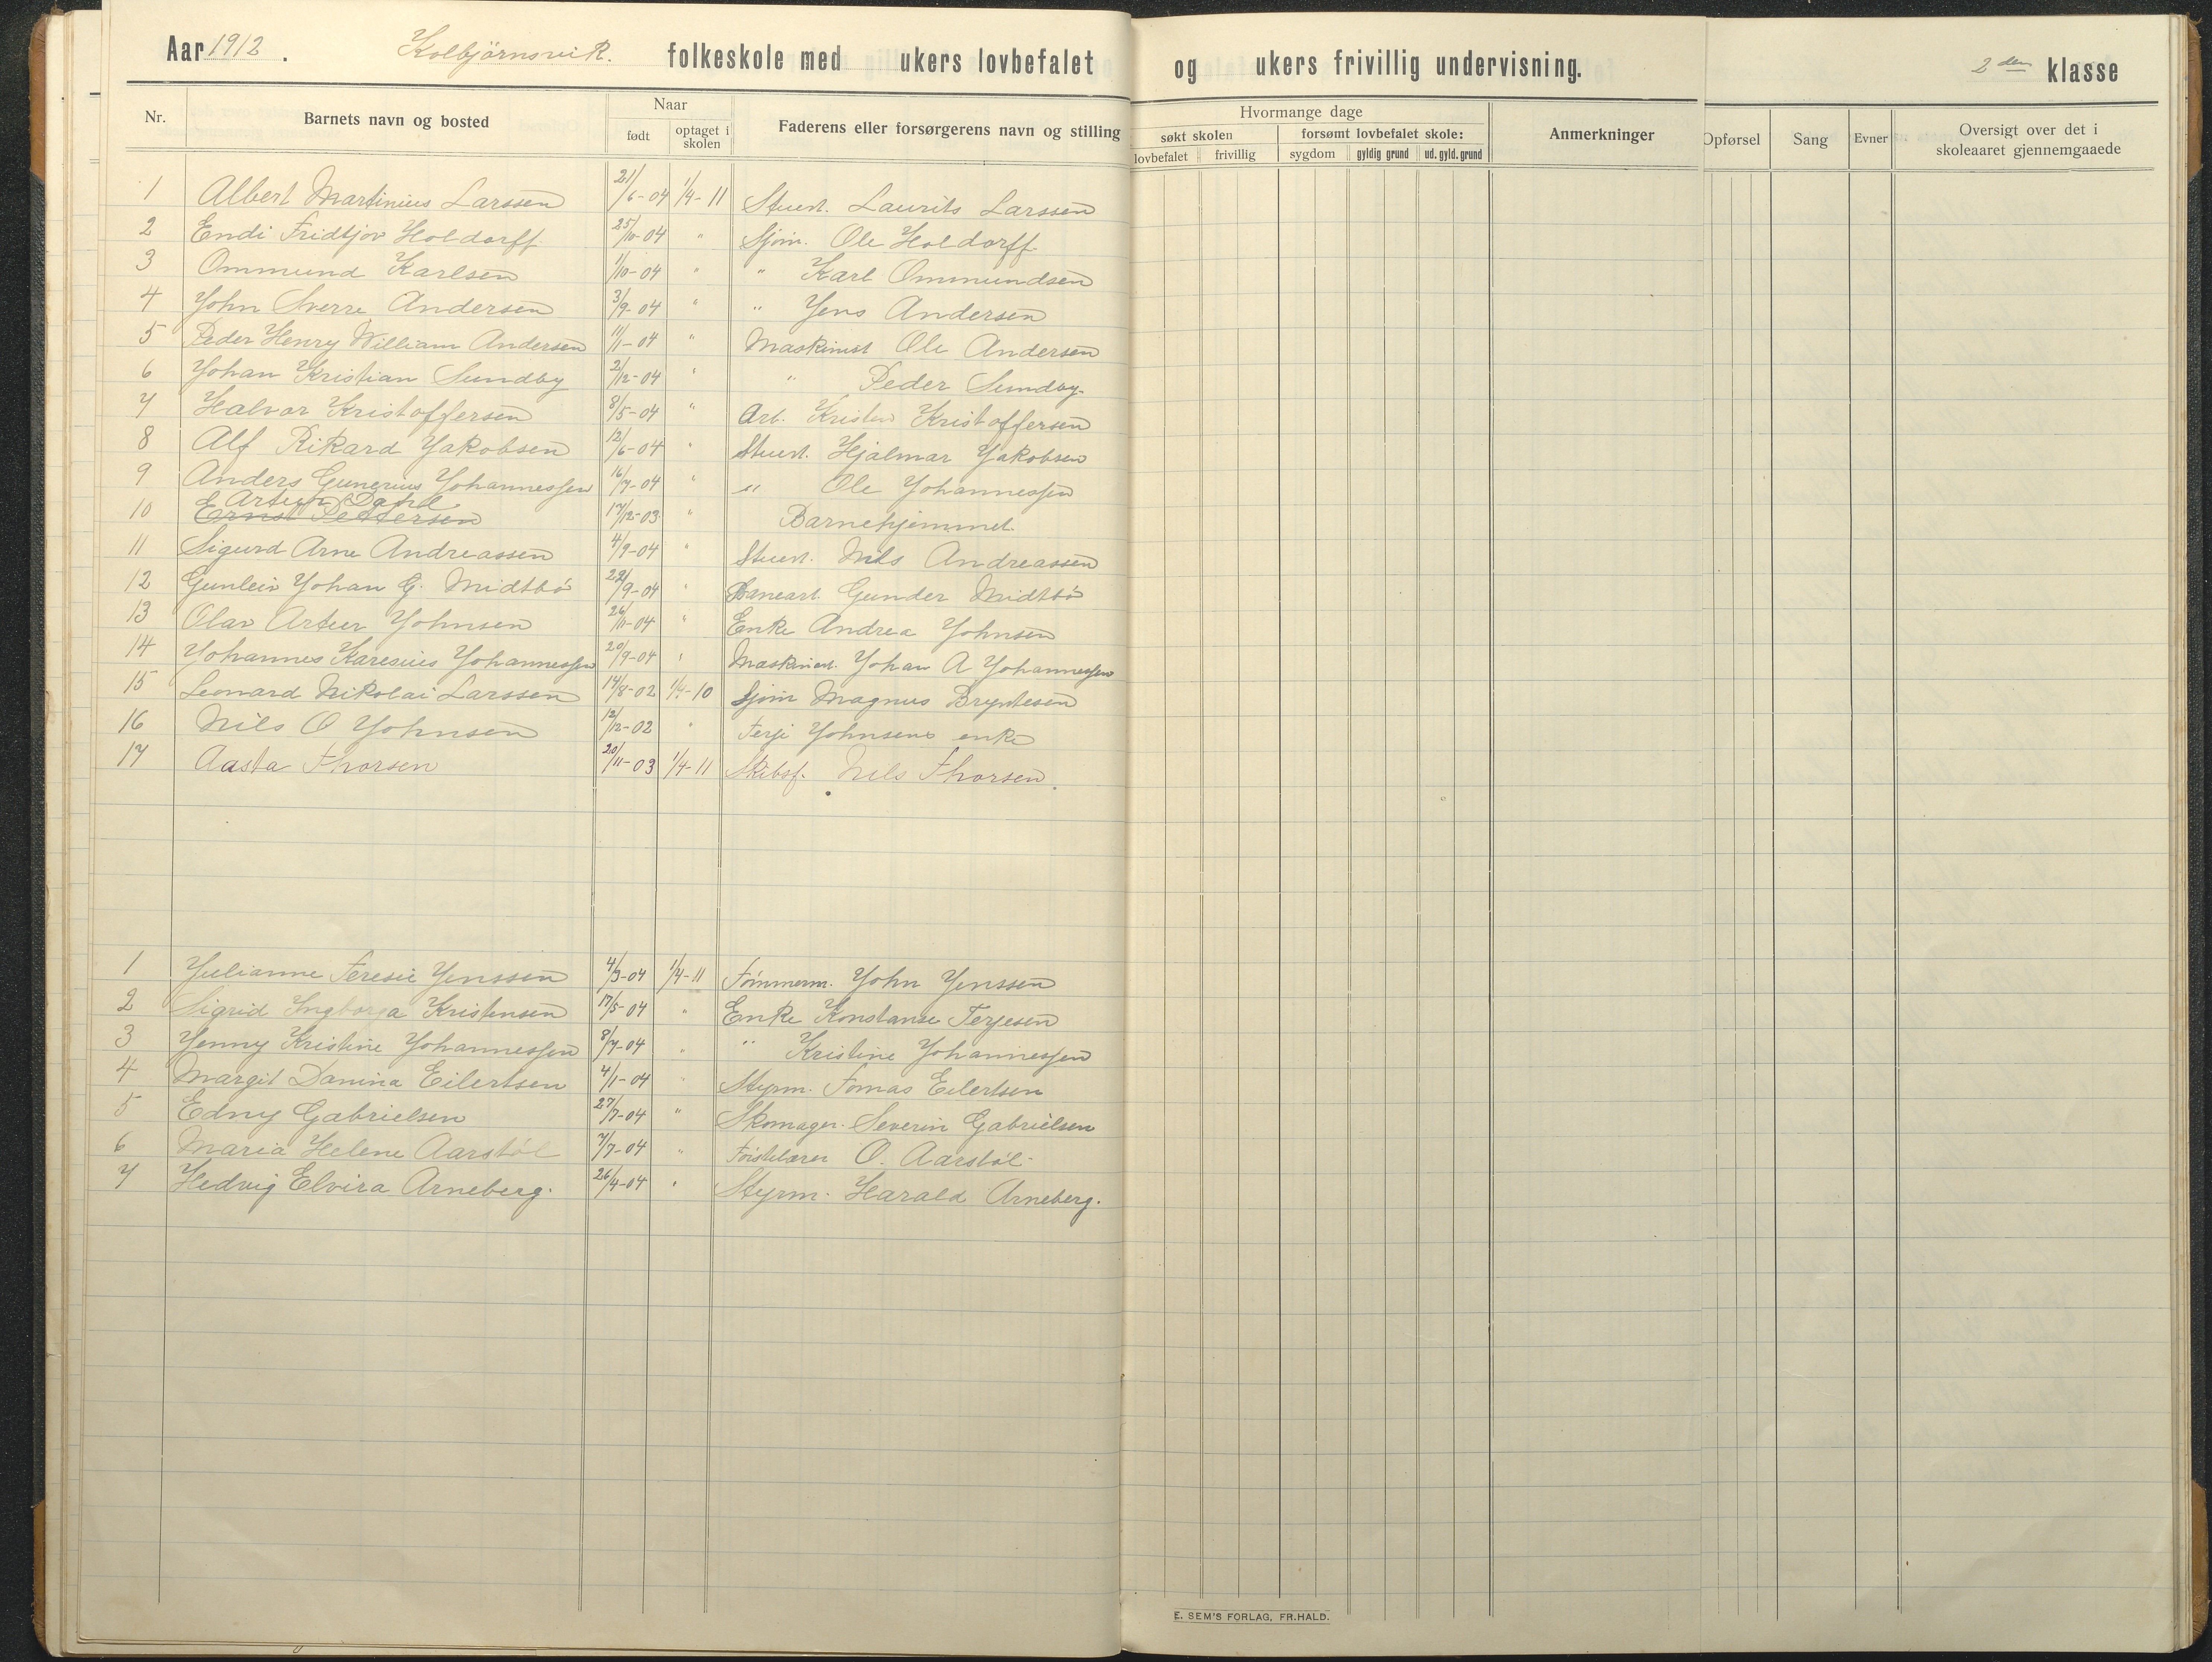 Aar 1912. Kolbjørnsvik. folkeskole med ukers lovbefalet og ukers frivillig undervisning. 2den klasse
Nr. Barnets navn og bosted Naar Faderens eller forsørgerens navn og stilling Hvormange dage Anmerkninger Opførsel Sang Evner Oversigt over det i skoleaaret gjennemgaaede
født optaget i skolen søkt skolen forsømt lovbefalet skole:
lovbefalet frivillig sygdom gyldig grund ud. gyld. grund
1 Albert Martinius Larssen 21/6-04 1/4-11 Stuert. Laurits Larssen
2 Endi Fridtjov Holdorff 25/10-04 " Sjøm. Ole Holdorff.
3 Ommund Karlsen 1/10-04 " " Karl Ommundsen
4 John Sverre Andersen 3/9-04 " " Jens Andersen
5 Peder Henry William Andersen 11/11-04 " Maskinist Ole Andersen
6 Johan Kristian Sundby 2/12-04 " " Peder Sundby.
7 Halvor Kristoffersen 8/5-04 " Arb. Kristen Kristoffersen
8 Alf Rikard Jakobsen 12/6-04 " Stuert. Hjalmar Jakobsen
9 Anders Gunerius Johannessen 16/7-04 " " Ole Johannessen
Artur Dahl
10 Ernst Pettersen 17/12-03 " Barnehjemmet.
11 Sigurd Arne Andreassen 4/9-04 " Stuert. Nils Andreassen
12 Gunleiv Johan G. Midtbø 22/9-04 " Banearb. Gunder Midtbø
13 Olav Artur Johnsen 26/11-04 " Enke Andrea Johnsen
14 Johannes Karesius Johannessen 20/9-04 " Maskinist. Johan A Johannessen
15 Leonard Nikolai Larssen 14/8-02 1/4-10 Sjøm Magnus Bryntesen
16 Nils O Johnsen 12/12-02 " Terje Johnsens enke
17 Aasta Thorsen 20/11-03 1/4-11 Skibsf. Nils Thorsen.
1 Julianne Teresie Jenssen 4/3-04 1/4-11 Tømmerm. John Jenssen
2 Sigrid Ingborga Kristensen 17/5-04 " Enke Konstanse Terjesen
3 Jenny Kristine Johannessen 8/7-04 " " Kristine Johannessen
4 Margit Danina Eilertsen 4/1-04 " Styrm. Tomas Eilertsen
5 Edny Gabrielsen 27/7-04 " Skomager. Severin Gabrielsen
6 Maria Helene Aarstøl 7/7-04 " Førstelærer O. Aarstøl.
7 Hedvig Elvira Arneberg. 26/4-04 " Styrm. Harald Arneberg.
E. SEM'S FORLAG, FR.HALD.